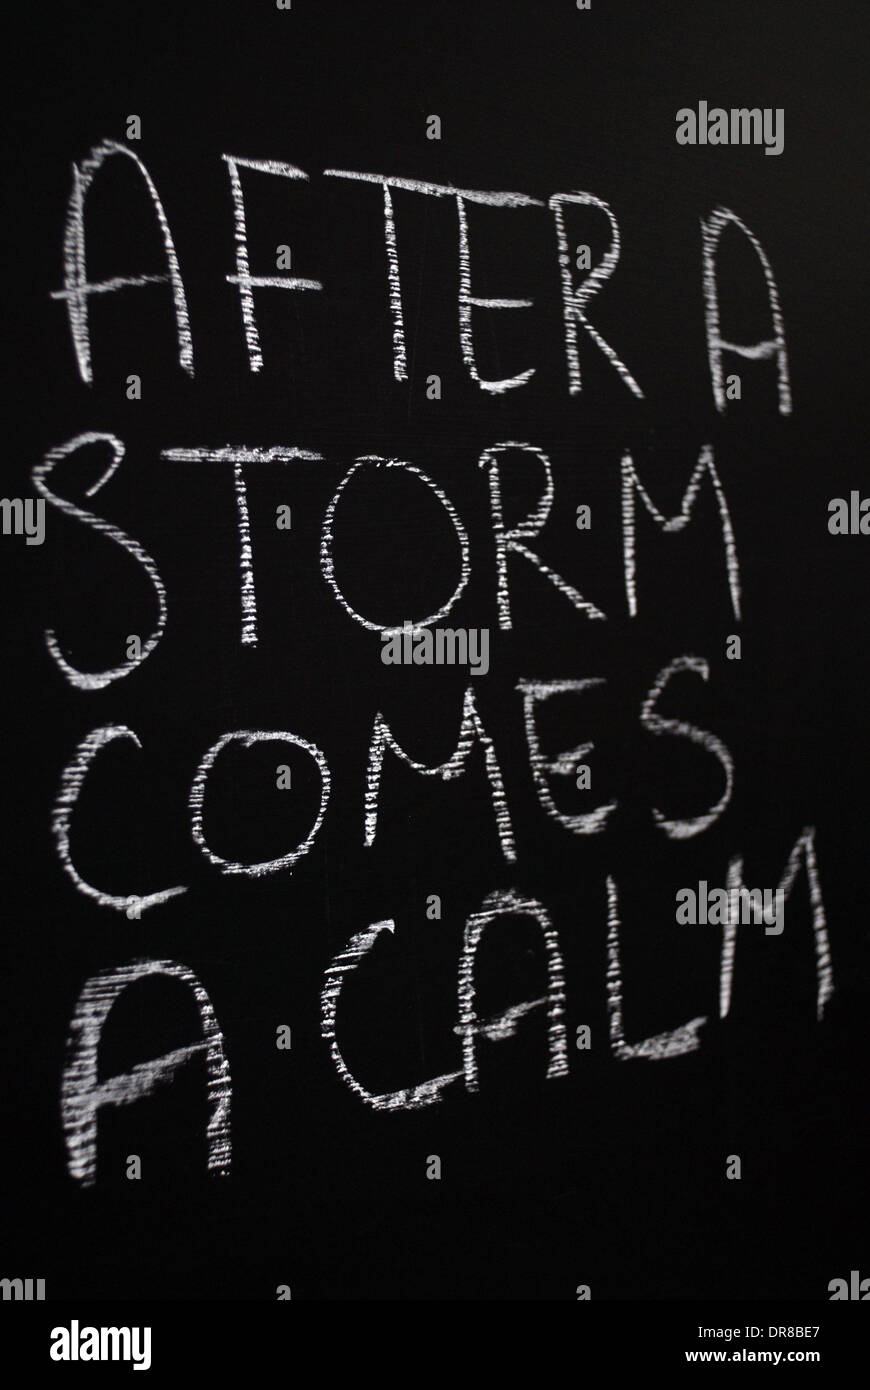 AFTER A
STORM
COMES
A CALM
alamy
alamy
alamy
alamy
Image ID: DR8BE7
www.alamy.com